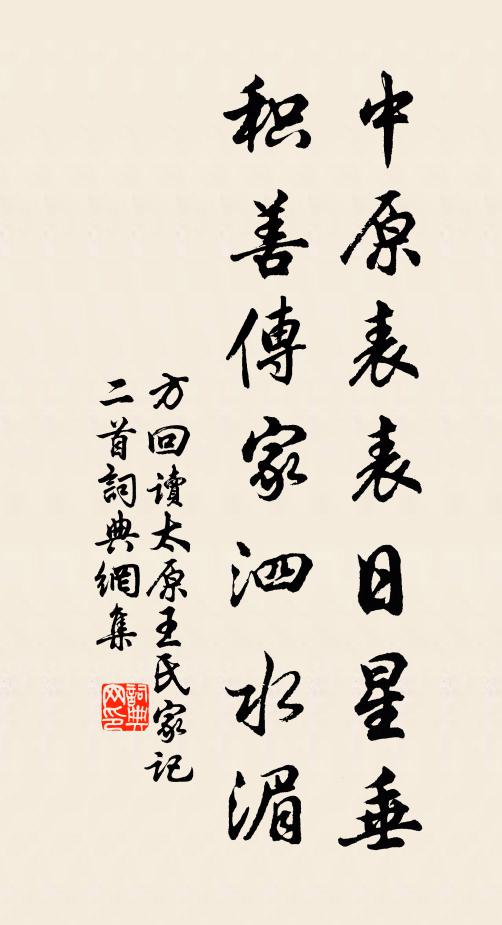 中原表表日星垂
积善傳家泗水湄
方回讀太原王氏家记
二首詞典網集
詞典网印